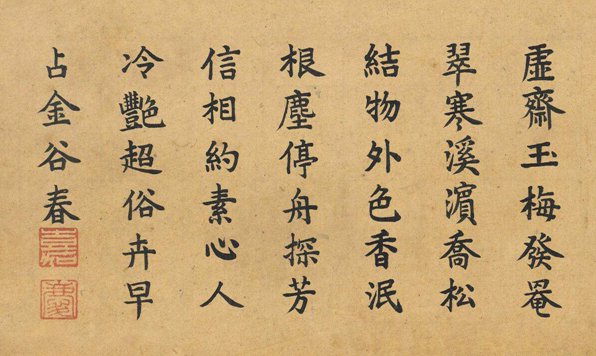 虛齋玉梅發罨
翠寒溪濵喬松
結物外色香泯
根塵停舟探芳
信相約素心人
冷豔超俗卉早
占金谷春